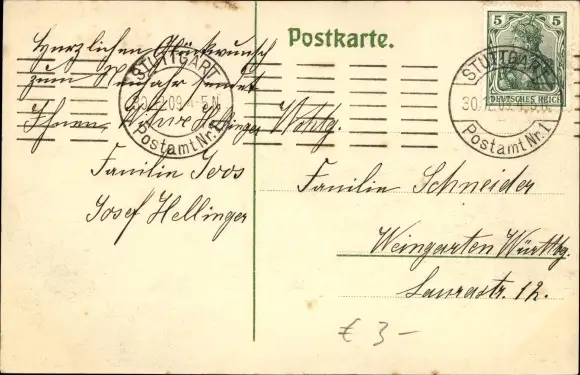 Postkarte.
5 5
DEUTSCHES REICH
STUTTGART
30.12.09.4-5.N.
Postamt Nr. 1
STUTTGART
30.12.09.
Postamt Nr. 1
Herzlichen Glückwunsch
zum Neujahr sendet
Ihnen, Witwe Hellinger
Familie
Josef Hellinger
Wohlg.
Familie Schneider
Weingarten Württbg.
Laurastr. 12.
€ 3-